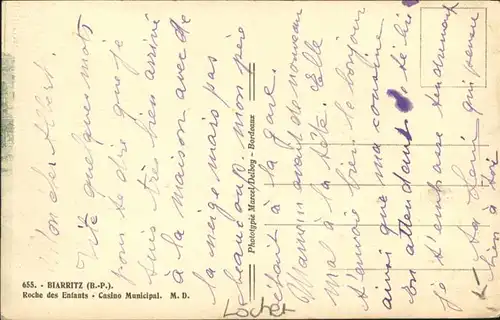 Mon cher Albert.
Vite quelques mots
pour te dire que je
suis très bien arrivé
à la maison avec de
la neige mais pas
beaucoup. mon père
était à la gare.
Maman avait de nouveau
mal à la tête. Elle
t'envoie bien le bonjour
ainsi que ma cousine
en attendant de te lire
je t'embrasse tendrement
ta qui pense
bien à toi
655. - BIARRITZ (B.-P.).
Roche des Enfants - Casino Municipal. M. D.
Phototypie Marcel Delboy - Bordeaux
Locher